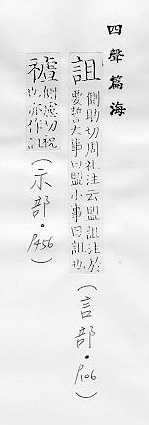 四聲篇海
詛
側助切周礼注云盟詛注於
要誓大事曰盟小事曰詛也
(言部·P106)
側慮切祝
也亦作詛
(示部·P456)